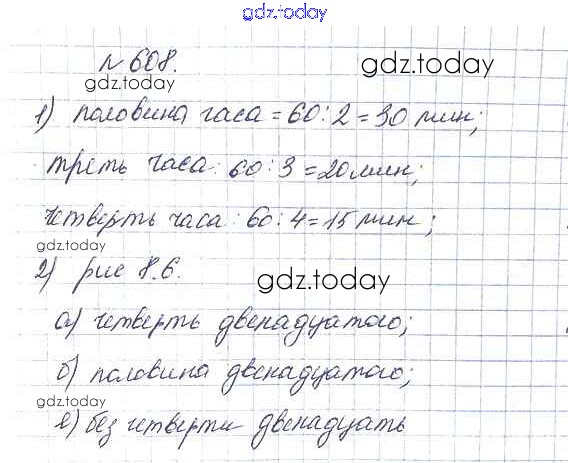 gdz.today
№ 608.
gdz.today
gdz.today
1) половина часа = 60 : 2 = 30 мин;
треть часа : 60 : 3 = 20 мин;
четверть часа : 60 : 4 = 15 мин;
gdz.today
2) рис 8.6.
gdz.today
а) четверть двенадцатого;
б) половина двенадцатого;
gdz.today
в) без четверти двенадцать
gdz.today